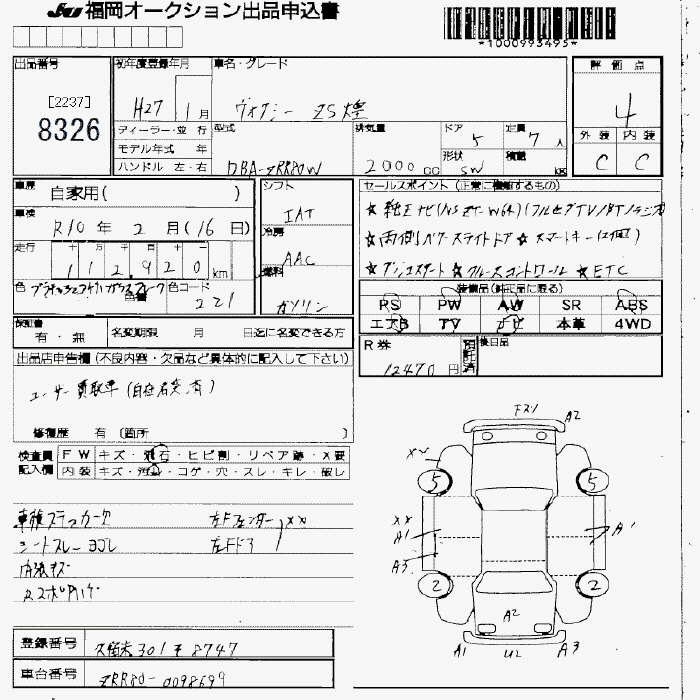 JU 福岡オークション出品申込書
*1000993495*
出品番号 初年度登録年月 車名・グレード 評価点
[2237]
8326
H27 1月 ヴォクシー ZS煌 4
ディーラー・並行 型式 排気量 ドア 5 定員 7人 外装 内装
モデル年式 年
ハンドル 左・右 DBA-ZRR80W 2000cc 形状 SW 積載 kg C C
車歴 自家用( ) シフト IAT セールスポイント(正常に機能するもの)
車検 R10年 2月(16日) 冷房 AAC
☆純正ナビ(NSZT-W64)(フルセグTV/BT/ラジオ
☆両側パワースライドドア ☆スマートキー(2個)
走行 112,920km 燃料 ガソリン
☆プッシュスタート ☆クルーズコントロール ☆ETC
色 色番 色コード 221
装備品(純正品に限る)
PS PW AW SR ABS
エアB TV ナビ 本革 4WD
保証書 有・無 名変期限 月 日迄に名変できる方
R券 12470円 預託済 後日品
出品店申告欄(不良内容・欠品など具体的に記入して下さい)
ユーザー買取車(自社名変済)
修復歴 有 〔箇所 〕
検査員 FW キズ・飛石・ヒビ割・リペア跡・X要
記入欄 内装 キズ・汚れ・コゲ・穴・スレ・キレ・破レ
左Fフェンダー XX
シートスレ ヨゴレ 左Fドア
内張キズ
登録番号 久留米 301 8747
車台番号 ZRR80-0098699
A2
XX
5 5
XX
A1 A1
A3
2 2
A2
A1 U2 A3